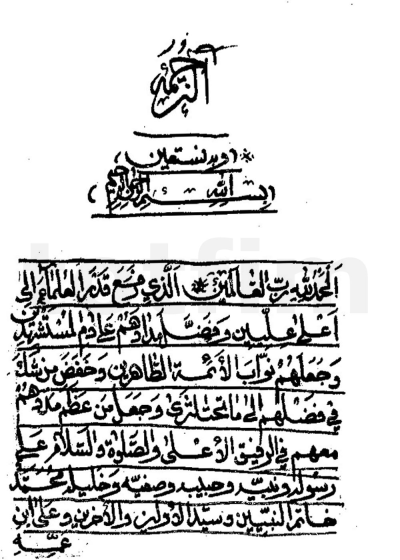 الترجمة
(وبه نستعين)
(بسم الله الرحمن الرحيم)
الحمد لله رب العالمين الذي رفع قدر العلماء إلى
أعلى عليين وفضل مدادهم على دم المستشهدين
وجعلهم نواب الأئمة الطاهرين وخفض من شك
في فضلهم إلى ما تحت الثرى وجعل من عظم مدادهم
معهم في الرفيق الأعلى والصلوة والسلام على
رسوله ونبيه وحبيبه وصفيه وخليله محمد
خاتم النبيين وسيد الأولين والآخرين وعلى ابن
عمه